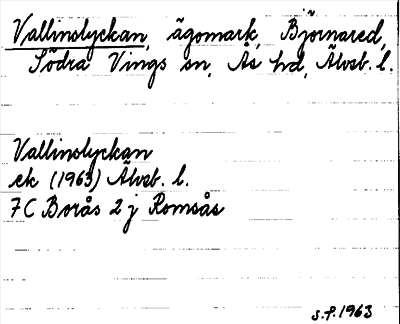 Vallinslyckan, ägomark, Björnared,
Södra Vings sn, Ås hd, Älvsb. l.
Vallinslyckan
ek (1963) Älvsb. l.
7C Borås 2 j Romsås
s.f. 1963